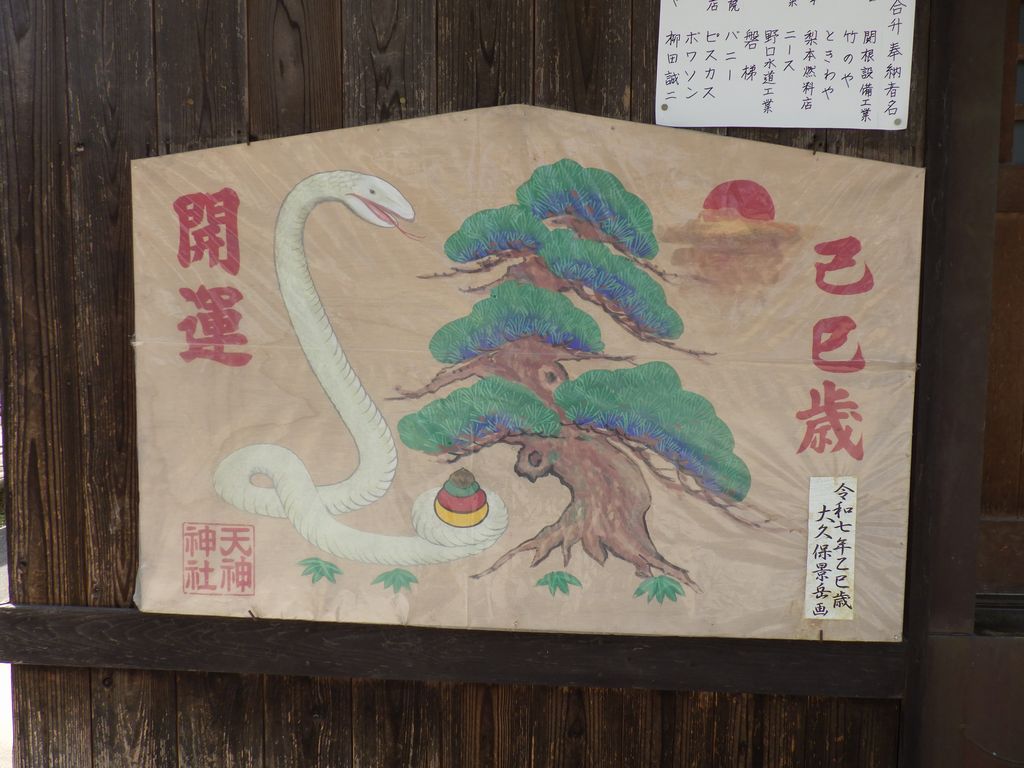 奉納者名
関根設備工業
竹のや
ときわや
梨本燃料店
ニース
野口水道工業
磐梯
バニー
ピスカス
ポワソン
柳田誠二
己巳歳
令和七年乙巳歳
大久保景岳画
開運
天神
神社